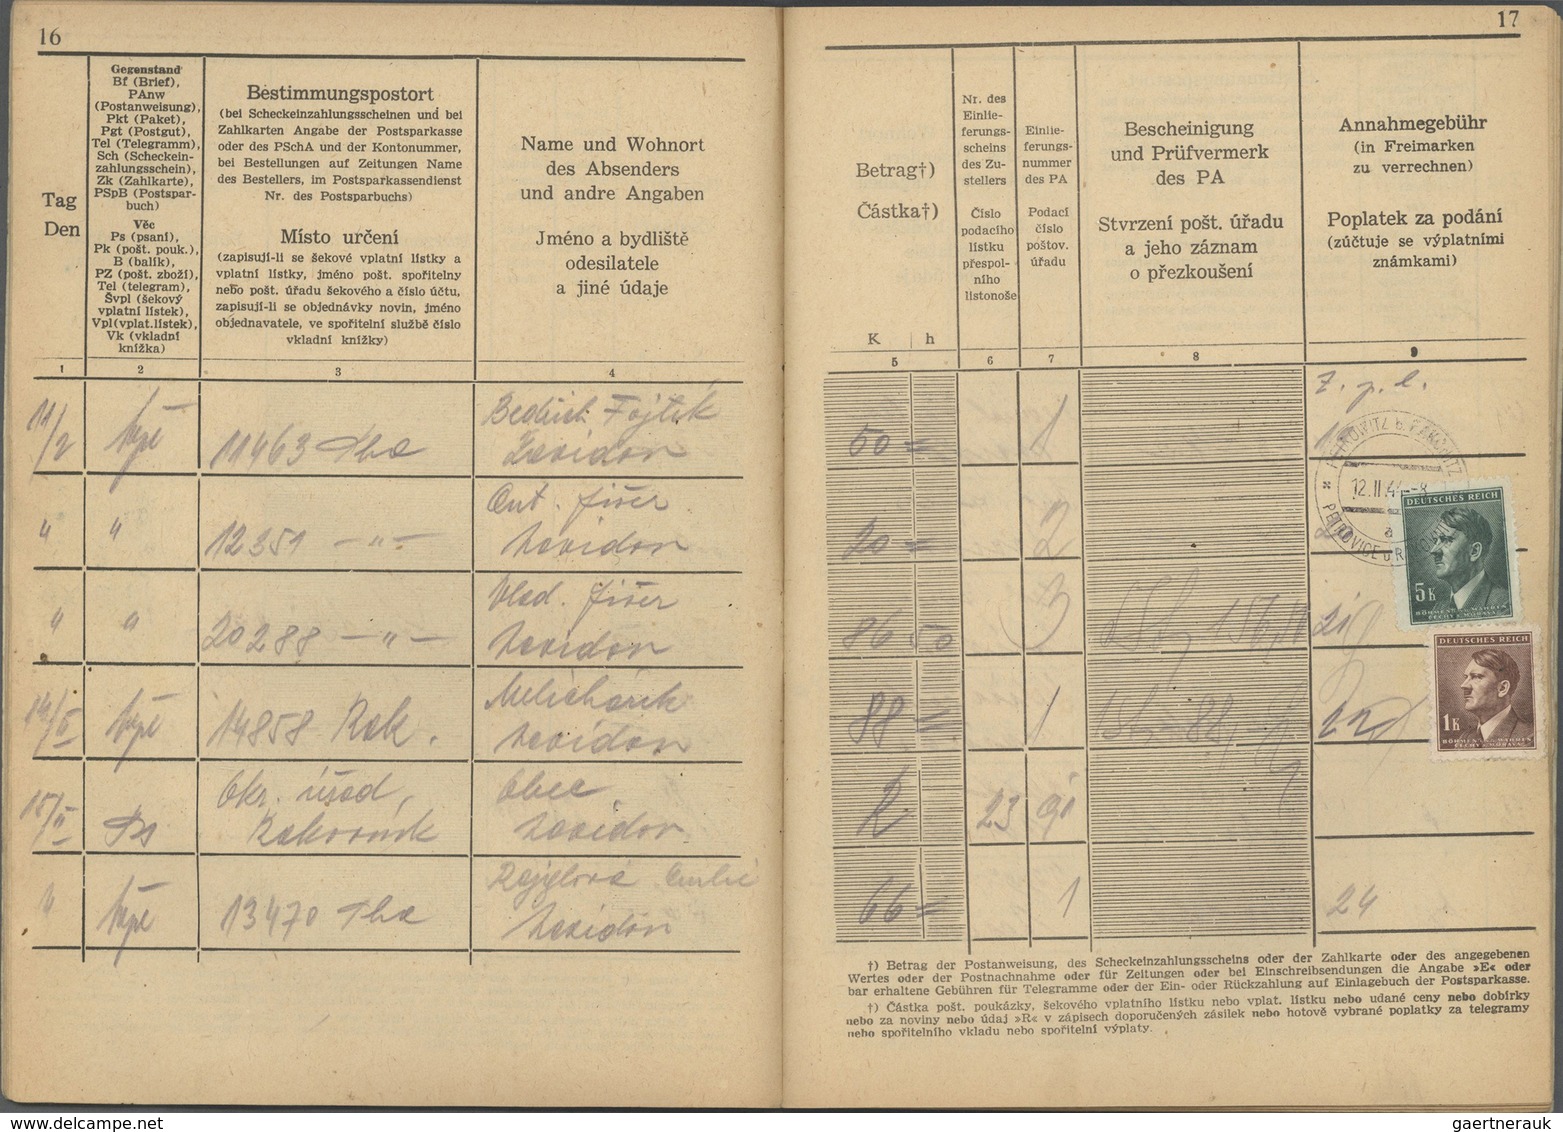 16
Tag
Den
Gegenstand
Bf (Brief),
PAnw
(Postanweisung),
Pkt (Paket),
Pgt (Postgut),
Tel (Telegramm),
Sch (Scheckein-
zahlungsschein),
Zk (Zahlkarte),
PSpB (Postspar-
buch)
Věc
Ps (psaní),
Pk (pošt. pouk.),
B (balík),
PZ (pošt. zboží),
Tel (telegram),
Švpl (šekový
vplatní lístek),
Vpl(vplat.lístek),
Vk (vkladní
knížka)
Bestimmungspostort
(bei Scheckeinzahlungsscheinen und bei
Zahlkarten Angabe der Postsparkasse
oder des PSchA und der Kontonummer,
bei Bestellungen auf Zeitungen Name
des Bestellers, im Postsparkassendienst
Nr. des Postsparbuchs)
Místo určení
(zapisují-li se šekové vplatní lístky a
vplatní lístky, jméno pošt. spořitelny
nebo pošt. úřadu šekového a číslo účtu,
zapisují-li se objednávky novin, jméno
objednavatele, ve spořitelní službě číslo
vkladní knížky)
Name und Wohnort
des Absenders
und andre Angaben
Jméno a bydliště
odesilatele
a jiné údaje
1
2
3
4
11/2
11463
Bedřich Fojtík
" "
12351 — " —
Ant. Fišer
" "
20288 — " —
Vlad. Fišer
14/II
14858 Rak.
15/II
Ps
Okr. úřad,
Rakovník
Obec
13470
17
Betrag†)
Částka†)
K h
Nr. des
Einlie-
ferungs-
scheins
des Zu-
stellers
Číslo
podacího
lístku
přespol-
ního
listonoše
Einlie-
ferungs-
nummer
des PA
Podací
číslo
poštov.
úřadu
Bescheinigung
und Prüfvermerk
des PA
Stvrzení pošt. úřadu
a jeho záznam
o přezkoušení
Annahmegebühr
(in Freimarken
zu verrechnen)
Poplatek za podání
(zúčtuje se výplatními
známkami)
5
6
7
8
9
50 =
1
20 =
2
86 50
3
88 =
1
R
23
91
66 =
1
24
12.II.4
DEUTSCHES REICH
5 K
BÖHMEN U. MÄHREN
ČECHY A MORAVA
DEUTSCHES REICH
1 K
BÖHMEN U. MÄHREN
ČECHY A MORAVA
†) Betrag der Postanweisung, des Scheckeinzahlungsscheins oder der Zahlkarte oder des angegebenen
Wertes oder der Postnachnahme oder für Zeitungen oder bei Einschreibsendungen die Angabe »E« oder
bar erhaltene Gebühren für Telegramme oder der Ein- oder Rückzahlung auf Einlagebuch der Postsparkasse.
†) Částka pošt. poukázky, šekového vplatního lístku nebo vplat. lístku nebo udané ceny nebo dobírky
nebo za noviny nebo údaj »R« v zápisech doporučených zásilek nebo hotově vybrané poplatky za telegramy
nebo spořitelního vkladu nebo spořitelní výplaty.
gaertnerauk